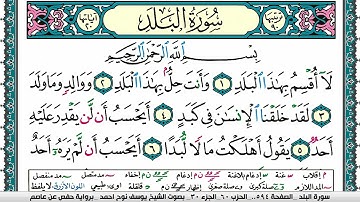 سُورَةُ الْبَلَدِ
بِسْمِ ٱللَّهِ ٱلرَّحْمَٰنِ ٱلرَّحِيمِ
لَآ أُقْسِمُ بِهَٰذَا ٱلْبَلَدِ ١ وَأَنتَ حِلٌّۢ بِهَٰذَا ٱلْبَلَدِ ٢ وَوَالِدٍ وَمَا وَلَدَ
٣ لَقَدْ خَلَقْنَا ٱلْإِنسَٰنَ فِى كَبَدٍ ٤ أَيَحْسَبُ أَن لَّن يَقْدِرَ عَلَيْهِ
أَحَدٌ ٥ يَقُولُ أَهْلَكْتُ مَالًا لُّبَدًا ٦ أَيَحْسَبُ أَن لَّمْ يَرَهُۥٓ أَحَدٌ
سورة البلد الصفحة ٥٩٤ الحزب ٦٠ الجزء ٣٠ بصوت الشيخ يوسف نوح احمد برواية حفص عن عاصم